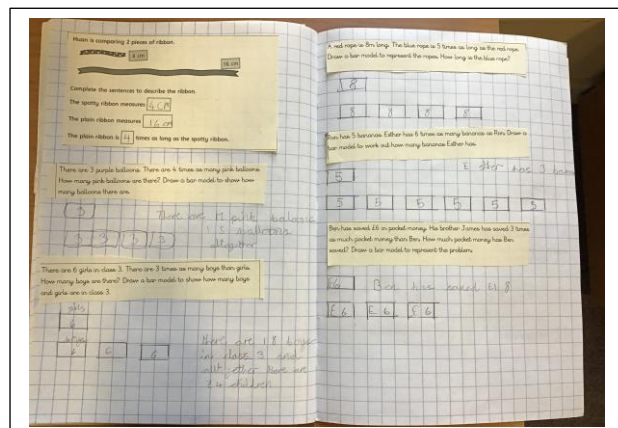 Huan is comparing 2 pieces of ribbon.
4 cm
16 cm
Complete the sentences to describe the ribbon.
The spotty ribbon measures 4 CM
The plain ribbon measures 16 cm
The plain ribbon is 4 times as long as the spotty ribbon.
There are 3 purple balloons. There are 4 times as many pink balloons.
How many pink balloons are there? Draw a bar model to show how
many balloons there are.
3
There are
pink
3 3 3 3
There are 6 girls in class 3. There are 3 times as many boys than girls.
How many boys are there? Draw a bar model to show how many boys
and girls are in class 3.
girls
6
6 6 6
there are 18 boys
in class 3 and
there are
24 children
A red rope is 8m long. The blue rope is 5 times as long as the red rope.
Draw a bar model to represent the ropes. How long is the blue rope?
8
8 8 8 8
Ron has 5 bananas. Esther has 6 times as many bananas as Ron. Draw a
bar model to work out how many bananas Esther has.
5
has 3
5 5 5 5 5 5
Ben has saved £6 in pocket money. His brother James has saved 3 times
as much pocket money than Ben. How much pocket money has Ben
saved? Draw a bar model to represent the problem.
£6
has saved £1 8
£6 £6 £6